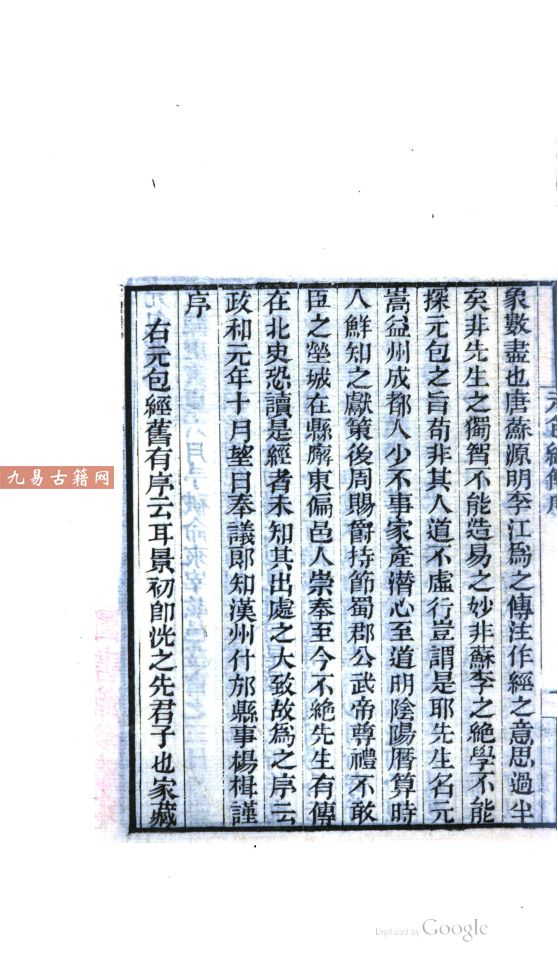 象數盡也唐蘇源明李江爲之傳注作經之意思過半
矣非先生之獨智不能造易之妙非蘇李之絶學不能
探元包之旨苟非其人道不虛行豈謂是耶先生名元
嵩益州成都人少不事家產潛心至道明陰陽曆算時
人鮮知之獻策後周賜爵持節蜀郡公武帝尊禮不敢
臣之塋城在縣廨東偏邑人崇奉至今不絶先生有傳
在北史恐讀是經者未知其出處之大致故爲之序云
政和元年十月望日奉議郎知漢州什邡縣事楊楫謹
序
右元包經舊有序云耳景初卽洸之先君子也家藏
九易古籍网
Digitized by Google